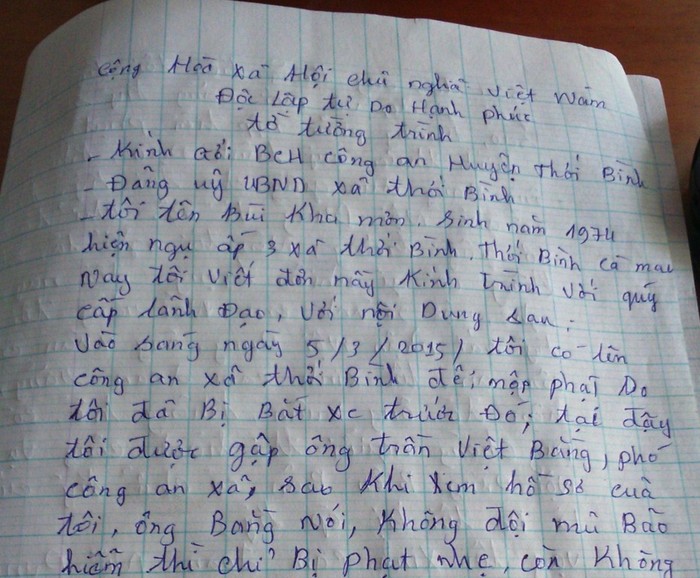 cộng Hoà xã Hội chủ nghĩa việt Nam
Độc Lập tự Do Hạnh phúc
tờ tường trình
- Kính gởi BCH công an Huyện thới Bình
- Đảng uỷ UBND xã thới Bình
- tôi tên Bùi Kha mởn. sinh năm 1974
hiện ngụ ấp 3 xã thới Bình. thới Bình cà mau
Nay tôi viết đơn nầy Kính trình với quý
cấp lãnh Đạo, với nội Dung sau:
vào sáng ngày 5/3/2015, tôi có lên
công an xã thới Bình để nộp phạt Do
tôi đã Bị Bắt xe trước Đó, tại đây
tôi được gặp ông trần việt Bằng, phó
công an xã, sau Khi xem hồ sơ của
tôi, ông Bằng Nói, Không đội mũ Bảo
hiểm thì chỉ Bị phạt nhẹ, còn Không